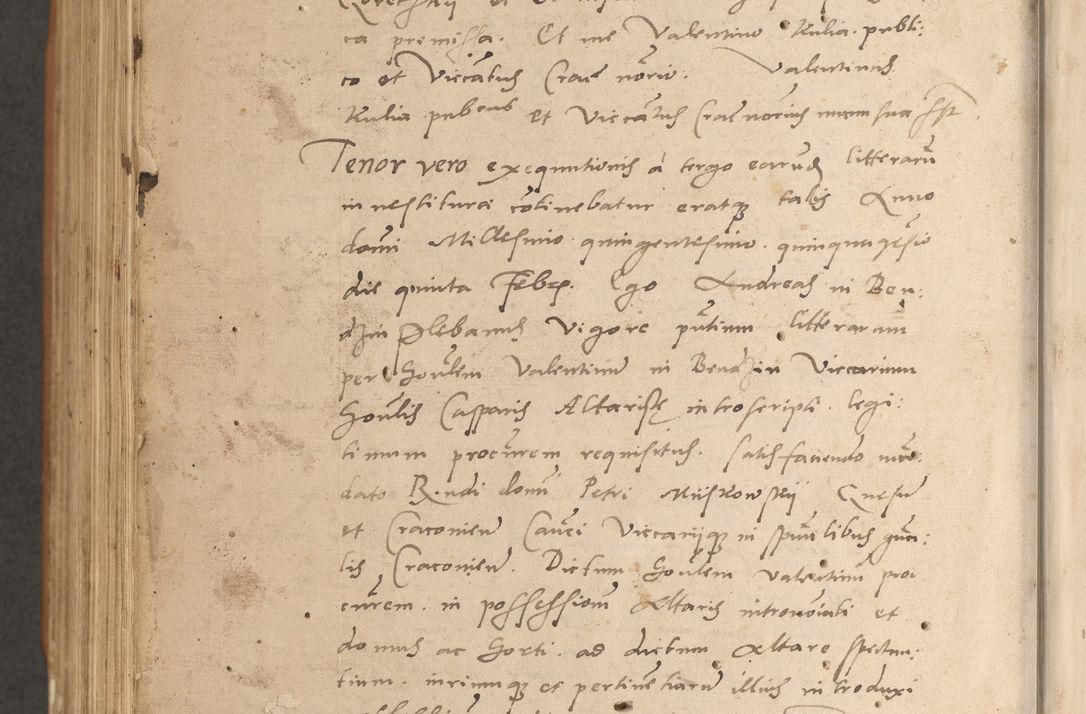 ca premissa. Et me Valentino Kulia. publi:
co et Viccariũs Crac̃ nõrio. Valentinus
Kulia pubcus et Viccariũs Crac̃ norius manu sua sst
Tenor vero exequutionis à tergo earund litteraru
in vestiturae cõtinebatur eratq talis Anno
domi Millesimo quingentesimo. quinquagesio
die quinta Febr. Ego Andreas in Ben:
dzin Plebanus Vigore pñtium litterarum
per Honlem Valentinũ in Bendzin Viccarium
Honlis Casparis Altariste introscripti. legi:
timum procurem requisitus. satisfaciendo mã:
dato R.ndi domi Petri Miskowskij Gnesñ
et Craconieñ Canci Viccarijq in spũalibus gña:
lis Craconieñ. Dictum Honlem Valentinũ pro:
curem. in possessionẽ Altaris intronoiati et
domus ac Horti. ad dictum Altare spectan:
tium. iuriumq et pertinẽtiarũ illius introduxi